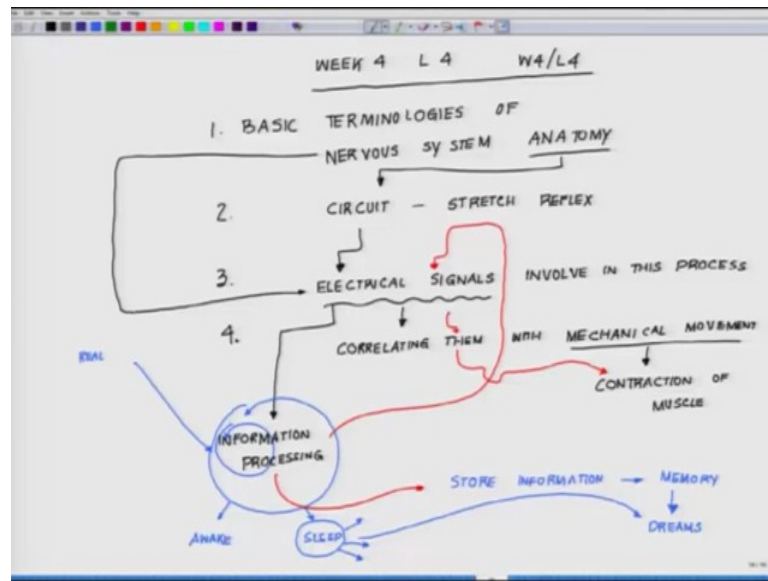 WEEK 4 L 4 W4/L4
1. BASIC TERMINOLOGIES OF
NERVOUS SYSTEM ANATOMY
2. CIRCUIT - STRETCH REFLEX
3. ELECTRICAL SIGNALS INVOLVE IN THIS PROCESS
4. CORRELATING THEM WITH MECHANICAL MOVEMENT
CONTRACTION OF
MUSCLE
INFORMATION
PROCESSING
STORE INFORMATION → MEMORY
DREAMS
AWAKE
SLEEP